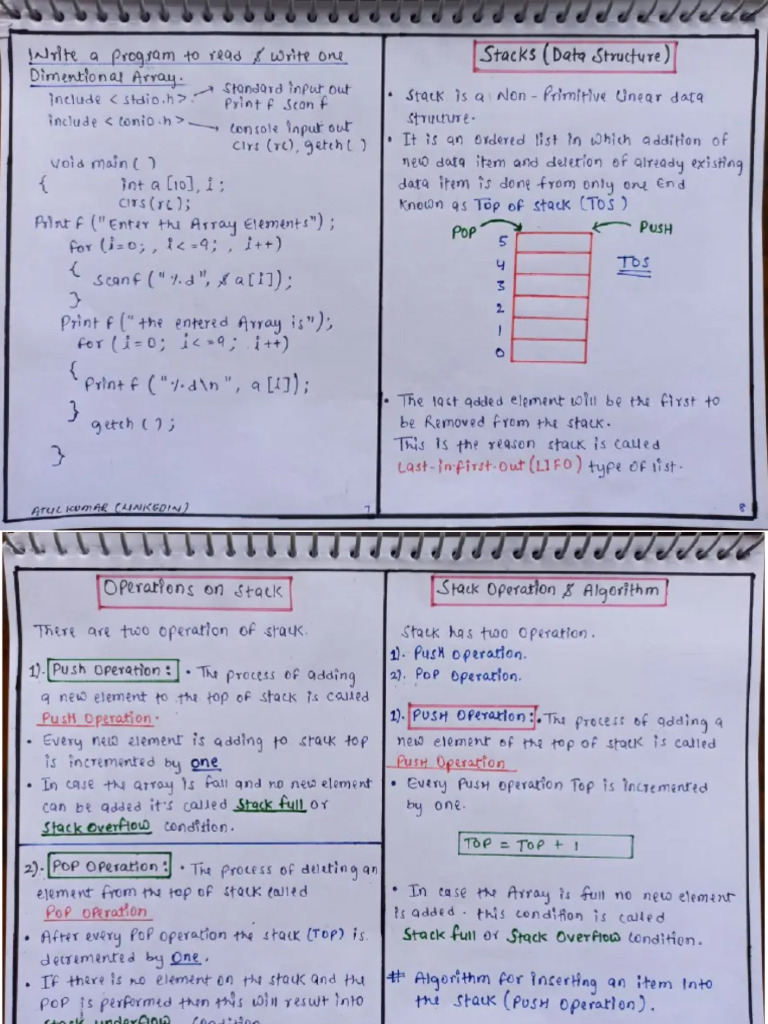 Write a program to read & write one
Dimentional Array.
include <stdio.h> → Standard input out
Print f Scan f
include <conio.h> → console input out
Clrs (rc), getch ( )
void main ( )
{ int a [10], i ;
Clrs(rc);
Print f ("Enter the Array Elements");
for (i=0; , i<=9; , i++)
{
Scanf ("%d", & a[i]);
}
Print f ("the entered Array is");
for (i=0; i<=9; i++)
{
Print f ("%d\n", a [i]);
}
getch ( );
}
ATUL KUMAR (LINKEDIN) 7
Stacks (Data Structure)
• Stack is a Non-Primitive linear data
structure.
• It is an ordered list in which addition of
new data item and deletion of already existing
data item is done from only one End
known as Top of stack (TOS)
POP PUSH
5
4 TOS
3
2
1
0
• The last added element will be the first to
be Removed from the stack.
This is the reason stack is called
Last-in-first-out (LIFO) type of list.
8
Operations on Stack
There are two operation of stack.
1). Push Operation: • The process of adding
a new element to the top of stack is called
Push Operation.
• Every new element is adding to stack top
is incremented by one
• In case the array is fall and no new element
can be added it's called Stack full or
Stack Overflow condition.
2). POP Operation: • The process of deleting an
element from the top of stack called
POP Operation
• After every POP operation the stack (TOP) is
decremented by One.
• If there is no element on the stack and the
POP is performed then this will result into
stack underflow condition
Stack Operation & Algorithm
Stack has two operation.
1). Push operation.
2). POP Operation.
1). PUSH Operation: • The process of adding a
new element of the top of stack is called
Push Operation
• Every Push operation Top is incremented
by one.
TOP = TOP + 1
• In case the Array is full no new element
is added. this condition is called
Stack full or Stack Overflow condition.
# Algorithm for inserting an item into
the stack (PUSH Operation).